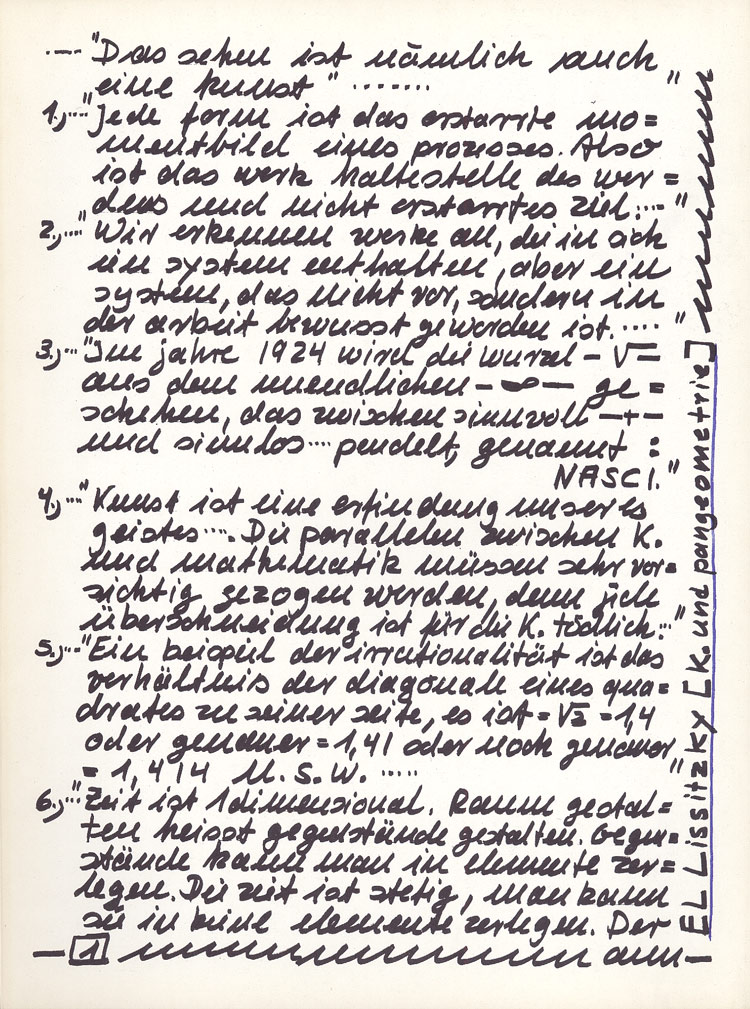 —·— "Das sehen ist nämlich auch
eine kunst" ........ "
1.,..."Jede form ist das erstarrte mo=
mentbild eines prozesses. Also
ist das werk haltestelle des wer=
dens und nicht erstarrtes ziel...."
2.,..."Wir erkennen werke an, die in sich
ein system enthalten, aber ein
system, das nicht vor, sondern in
der arbeit bewusst geworden ist....."
3.,..."Im jahre 1924 wird die wurzel – √=
aus dem unendlichen – ∞ – ge=
schehen, das zwischen sinnvoll –+–
und sinnlos.... pendelt, genannt :
NASCI."
4.,..."Kunst ist eine erfindung unseres
geistes..... Die parallelen zwischen K.
und mathematik müssen sehr vor=
sichtig gezogen werden, denn jede
überschneidung ist für die K. tödlich..."
5.,..."Ein beispiel der irrationalität ist das
verhältnis der diagonale eines qua=
drates zu seiner seite, es ist = √2 = 1,4
oder genauer = 1,41 oder noch genauer
= 1,414 U.S.W. ..... "
6.,..."Zeit ist 1dimensional. Raum gestal=
ten heisst gegenstände gestalten. Gegen=
stände kann man in elemente zer=
legen. Die zeit ist stetig, man kann
sie in keine elemente zerlegen. Der
— 1 raum —
EL Lissitzky [K. und pangeometrie]